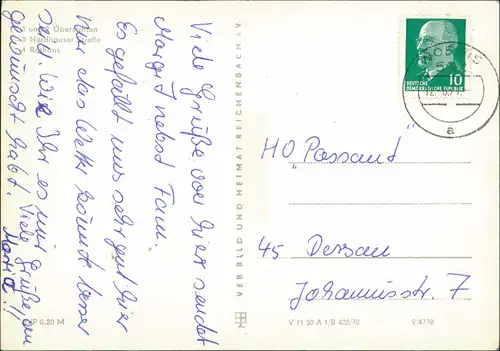 1 und 2 Übersichten
3 Nordhäuser Straße
4 Rathaus
Viele Grüße von hier sendet
Margit nebst Fam.
Es gefällt uns sehr gut hier
Nur das Wetter könnte besser
sein. Wie Ihr es mir
gewünscht habt. Viele Grüße an
Maria!!
EVP 0,20 M
VEB BILD UND HEIMAT REICHENBACH i. V.
V 11 50 A 1/B 422/70
9/4719
10
DEUTSCHE
DEMOKRATISCHE REPUBLIK
a
HO „Passant"
45 Dessau
Johannisstr. 7